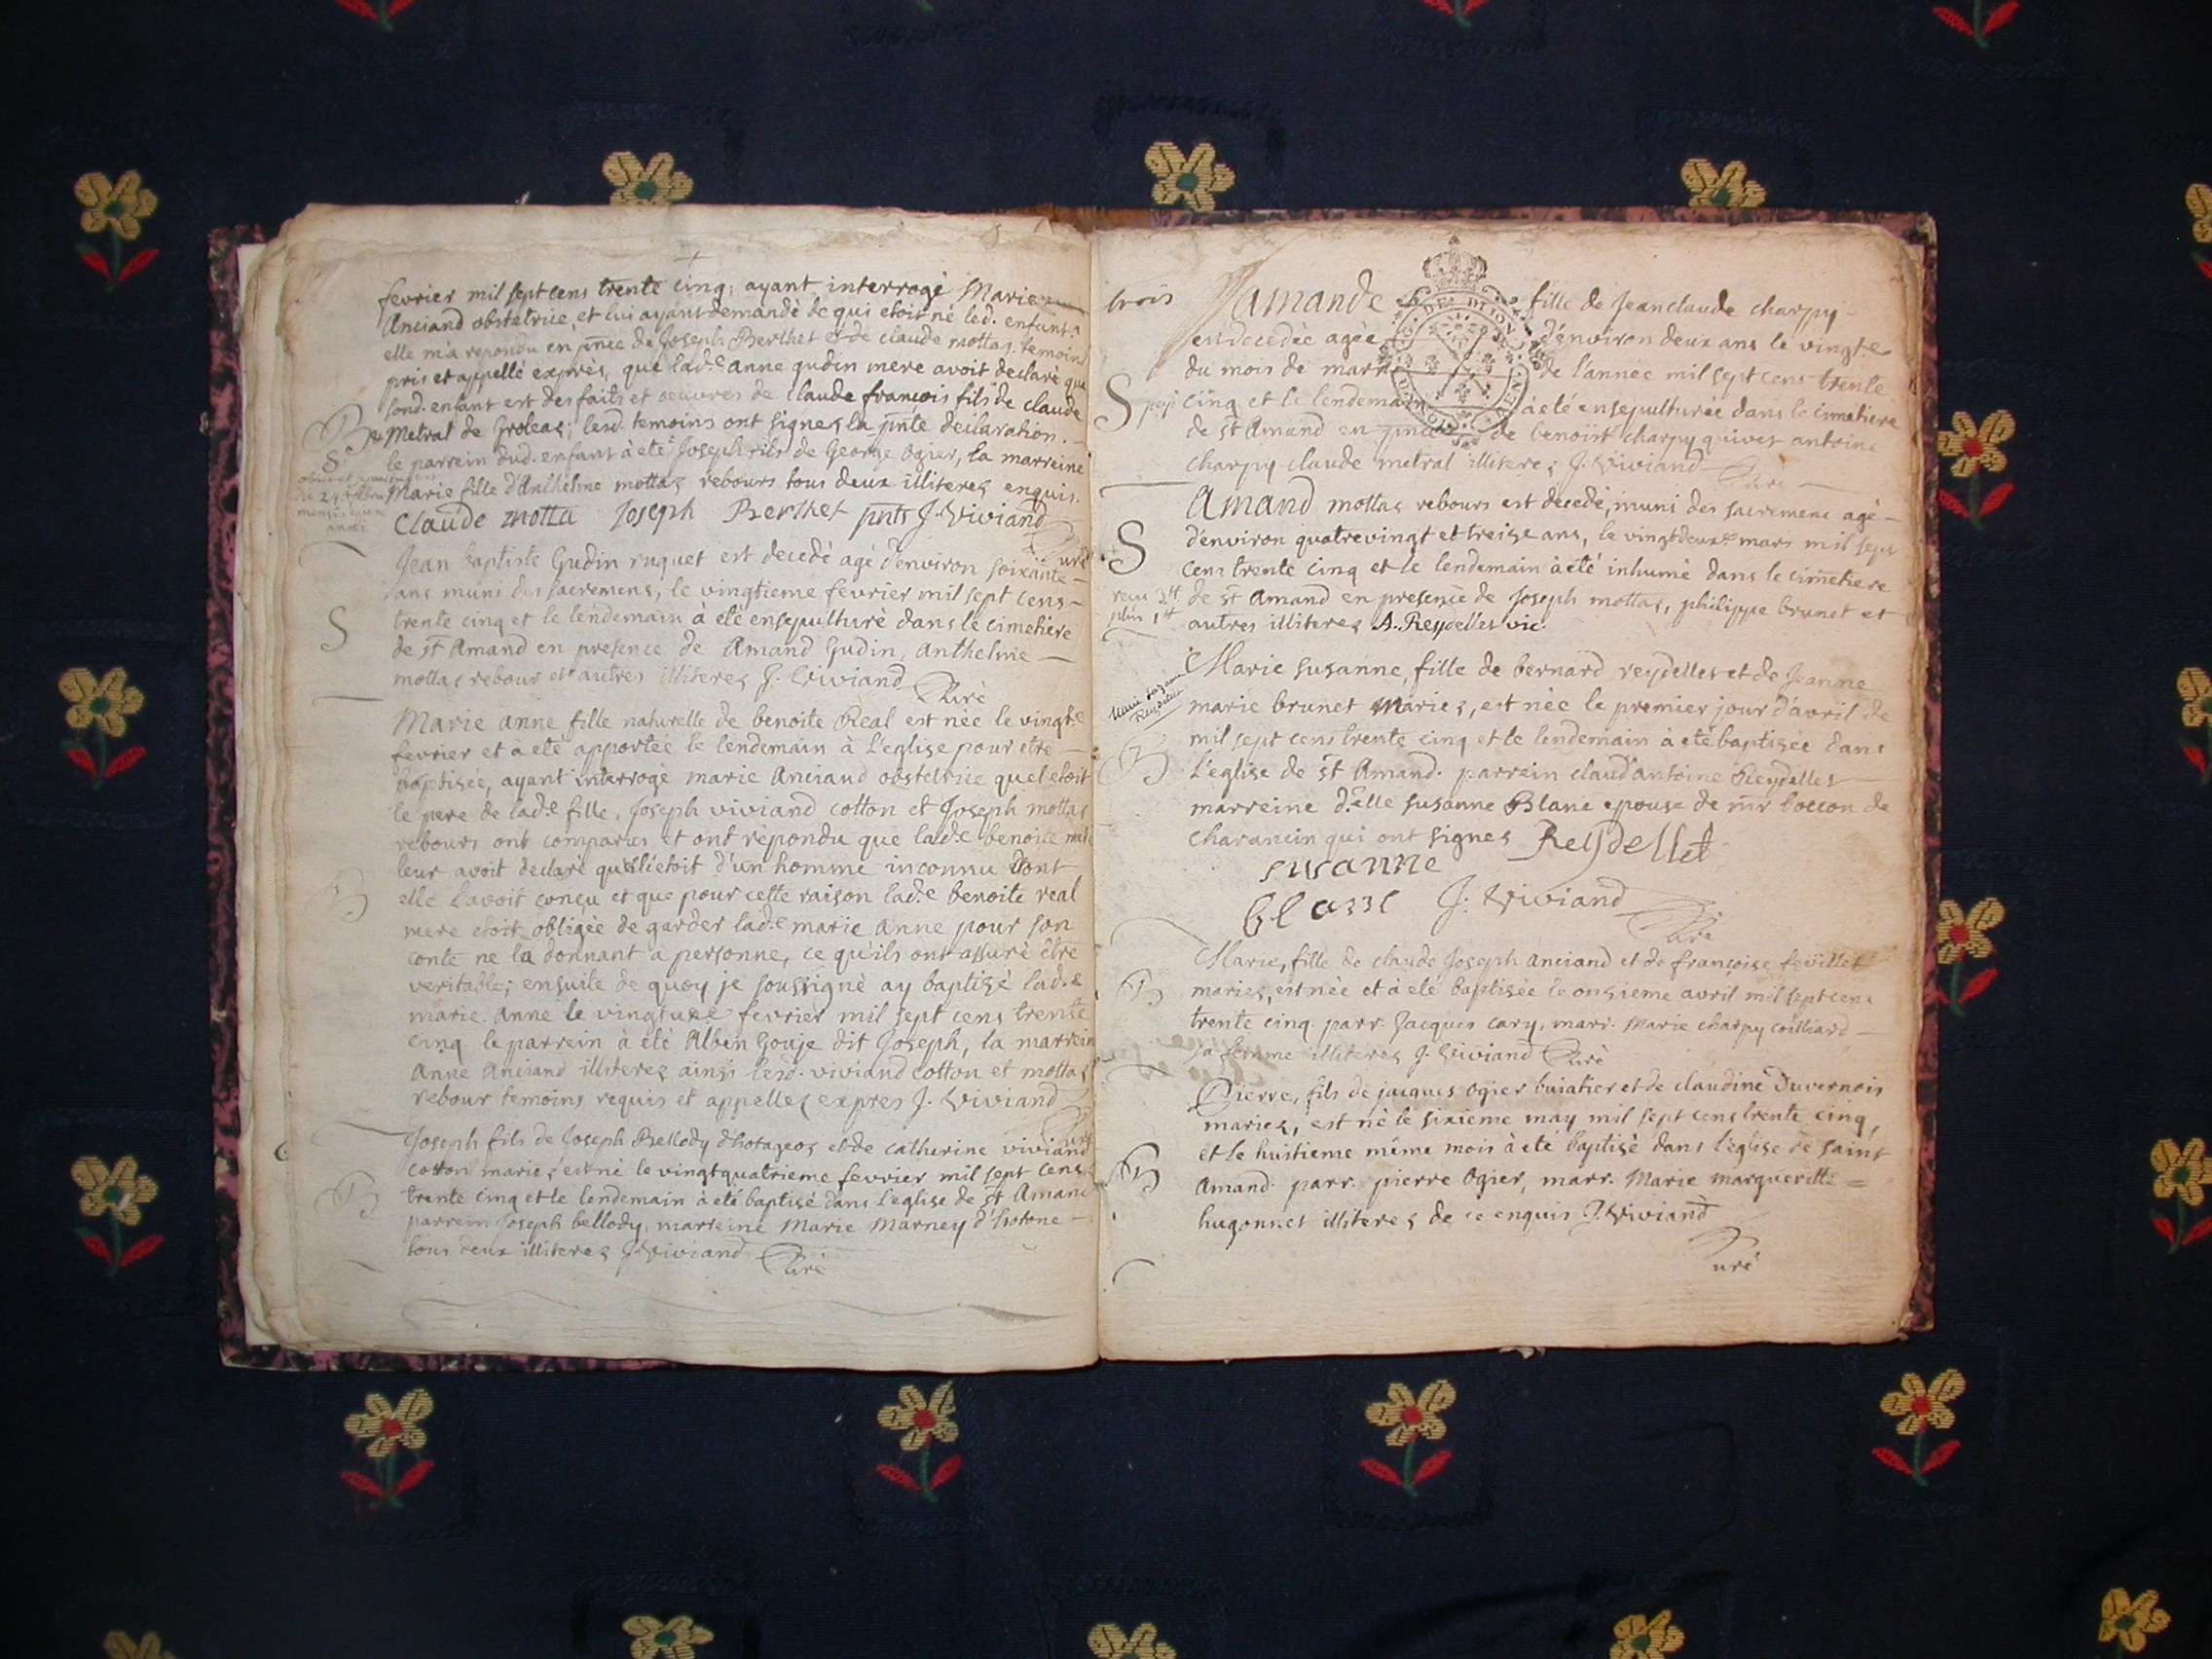 fevrier mil sept cens trente cinq, ayant interrogé Marie
Anciand obstetrice, et lui ayant demandé de qui etoit né led. enfant
elle m'a repondu en pnce de Joseph Berthet et de claude mottas temoins
pris et appellé exprès, que lad.e anne gudin mere avoit declaré que
sond. enfant est des faits et oeuvres de claude francois fils de claude
B Metral de Groleas; lesd. temoins ont signez la pnte declaration.
le parrein dud. enfant à eté Joseph fils de George Ogier, la marreine
S
Marie fille d'Anthelme mottas rebours tous deux illiterez enquis.
claude motta Joseph Berthet pnts J. Viviand
Curé
Jean baptiste Gudin ruquet est decedé agé d'environ soixante
ans muni des sacremens, le vingtieme fevrier mil sept cens
S trente cinq et le lendemain à eté ensepulturé dans le cimetiere
de st Amand en presence de Amand Gudin, Anthelme
mottas rebour et autres illiterez J. Viviand
Curé
Marie anne fille naturelle de benoite Real est née le vingt.e
fevrier et a eté apportée le lendemain à L'eglise pour etre
baptisée, ayant interrogé marie Anciand obstetrice quel etoit
le pere de lad.e fille, Joseph viviand cotton et Joseph mottas
rebours ont comparus et ont répondu que lad.e benoite
leur avoit declaré qu'il etoit d'un homme inconnu dont
B elle l'avoit conçu et que pour cette raison lad.e benoite real
mere etoit obligée de garder lad.e marie anne pour son
conte ne la donnant a personne, ce qu'ils ont assuré être
veritable; ensuite de quoy je soussigné ay baptisé lad.e
marie anne le vingtune fevrier mil sept cens trente
cinq le parrein à eté Alben Gouje dit Joseph, la marrein
Anne Anciand illiterez ainsi lesd. viviand cotton et mottas
rebour temoins requis et appellez expres J. Viviand
Curé
Joseph fils de Joseph Bellody d'hotageos et de catherine viviand
cotton mariez, est né le vingtquatrieme fevrier mil sept cens
B trente cinq et le lendemain à eté baptisé dans l'eglise de st Amand
parrein Joseph bellody, marreine Marie Marney d'hotone
tous deux illiterez J. Viviand
Curé
trois
Amande fille de Jean claude charpy
est decedée agée d'environ deux ans le vingt.e
du mois de mars de l'année mil sept cens trente
S cinq et le lendemain à eté ensepulturée dans le cimetiere
de st Amand en pnce de benoist charpy quivet antoine
charpy claude metral illiterez J. Viviand
Curé
Amand mottas rebours est decedé, muni des sacremens agé
S d'environ quatrevingt et treize ans, le vingtdeux.e mars mil sept
cens trente cinq et le lendemain à eté inhumé dans le cimetiere
de st Amand en presence de Joseph mottas, philippe brunet et
autres illiterez A. Reydellet vic.
Marie Suzanne
Reydellet
Marie susanne, fille de bernard reydellet et de Jeanne
marie brunet mariez, est née le premier jour d'avril
mil sept cens trente cinq et le lendemain à eté baptisée dans
B L'eglise de st Amand. parrein claud'antoine Reydellet
marreine d.elle susanne Blanc epouse de mr boccon de
charancin qui ont signez Reydellet
susanne
blanc J. Viviand
Curé
Marie, fille de claude Joseph anciand et de françoise feuillet
B mariez, est née et à eté baptisée le onzieme avril mil sept cens
trente cinq. parr. Jacques cary, marr. Marie charpy coilliard
sa femme illiterez J. Viviand Curé
Pierre, fils de jacques ogier buiatier et de claudine Duvernois
mariez, est né le sixieme may mil sept cens trente cinq,
B et le huitieme même mois à eté baptisé dans l'eglise de saint
Amand. parr. pierre Ogier, marr. Marie margueritte
hugonnet illiterez de ce enquis J. Viviand
Curé